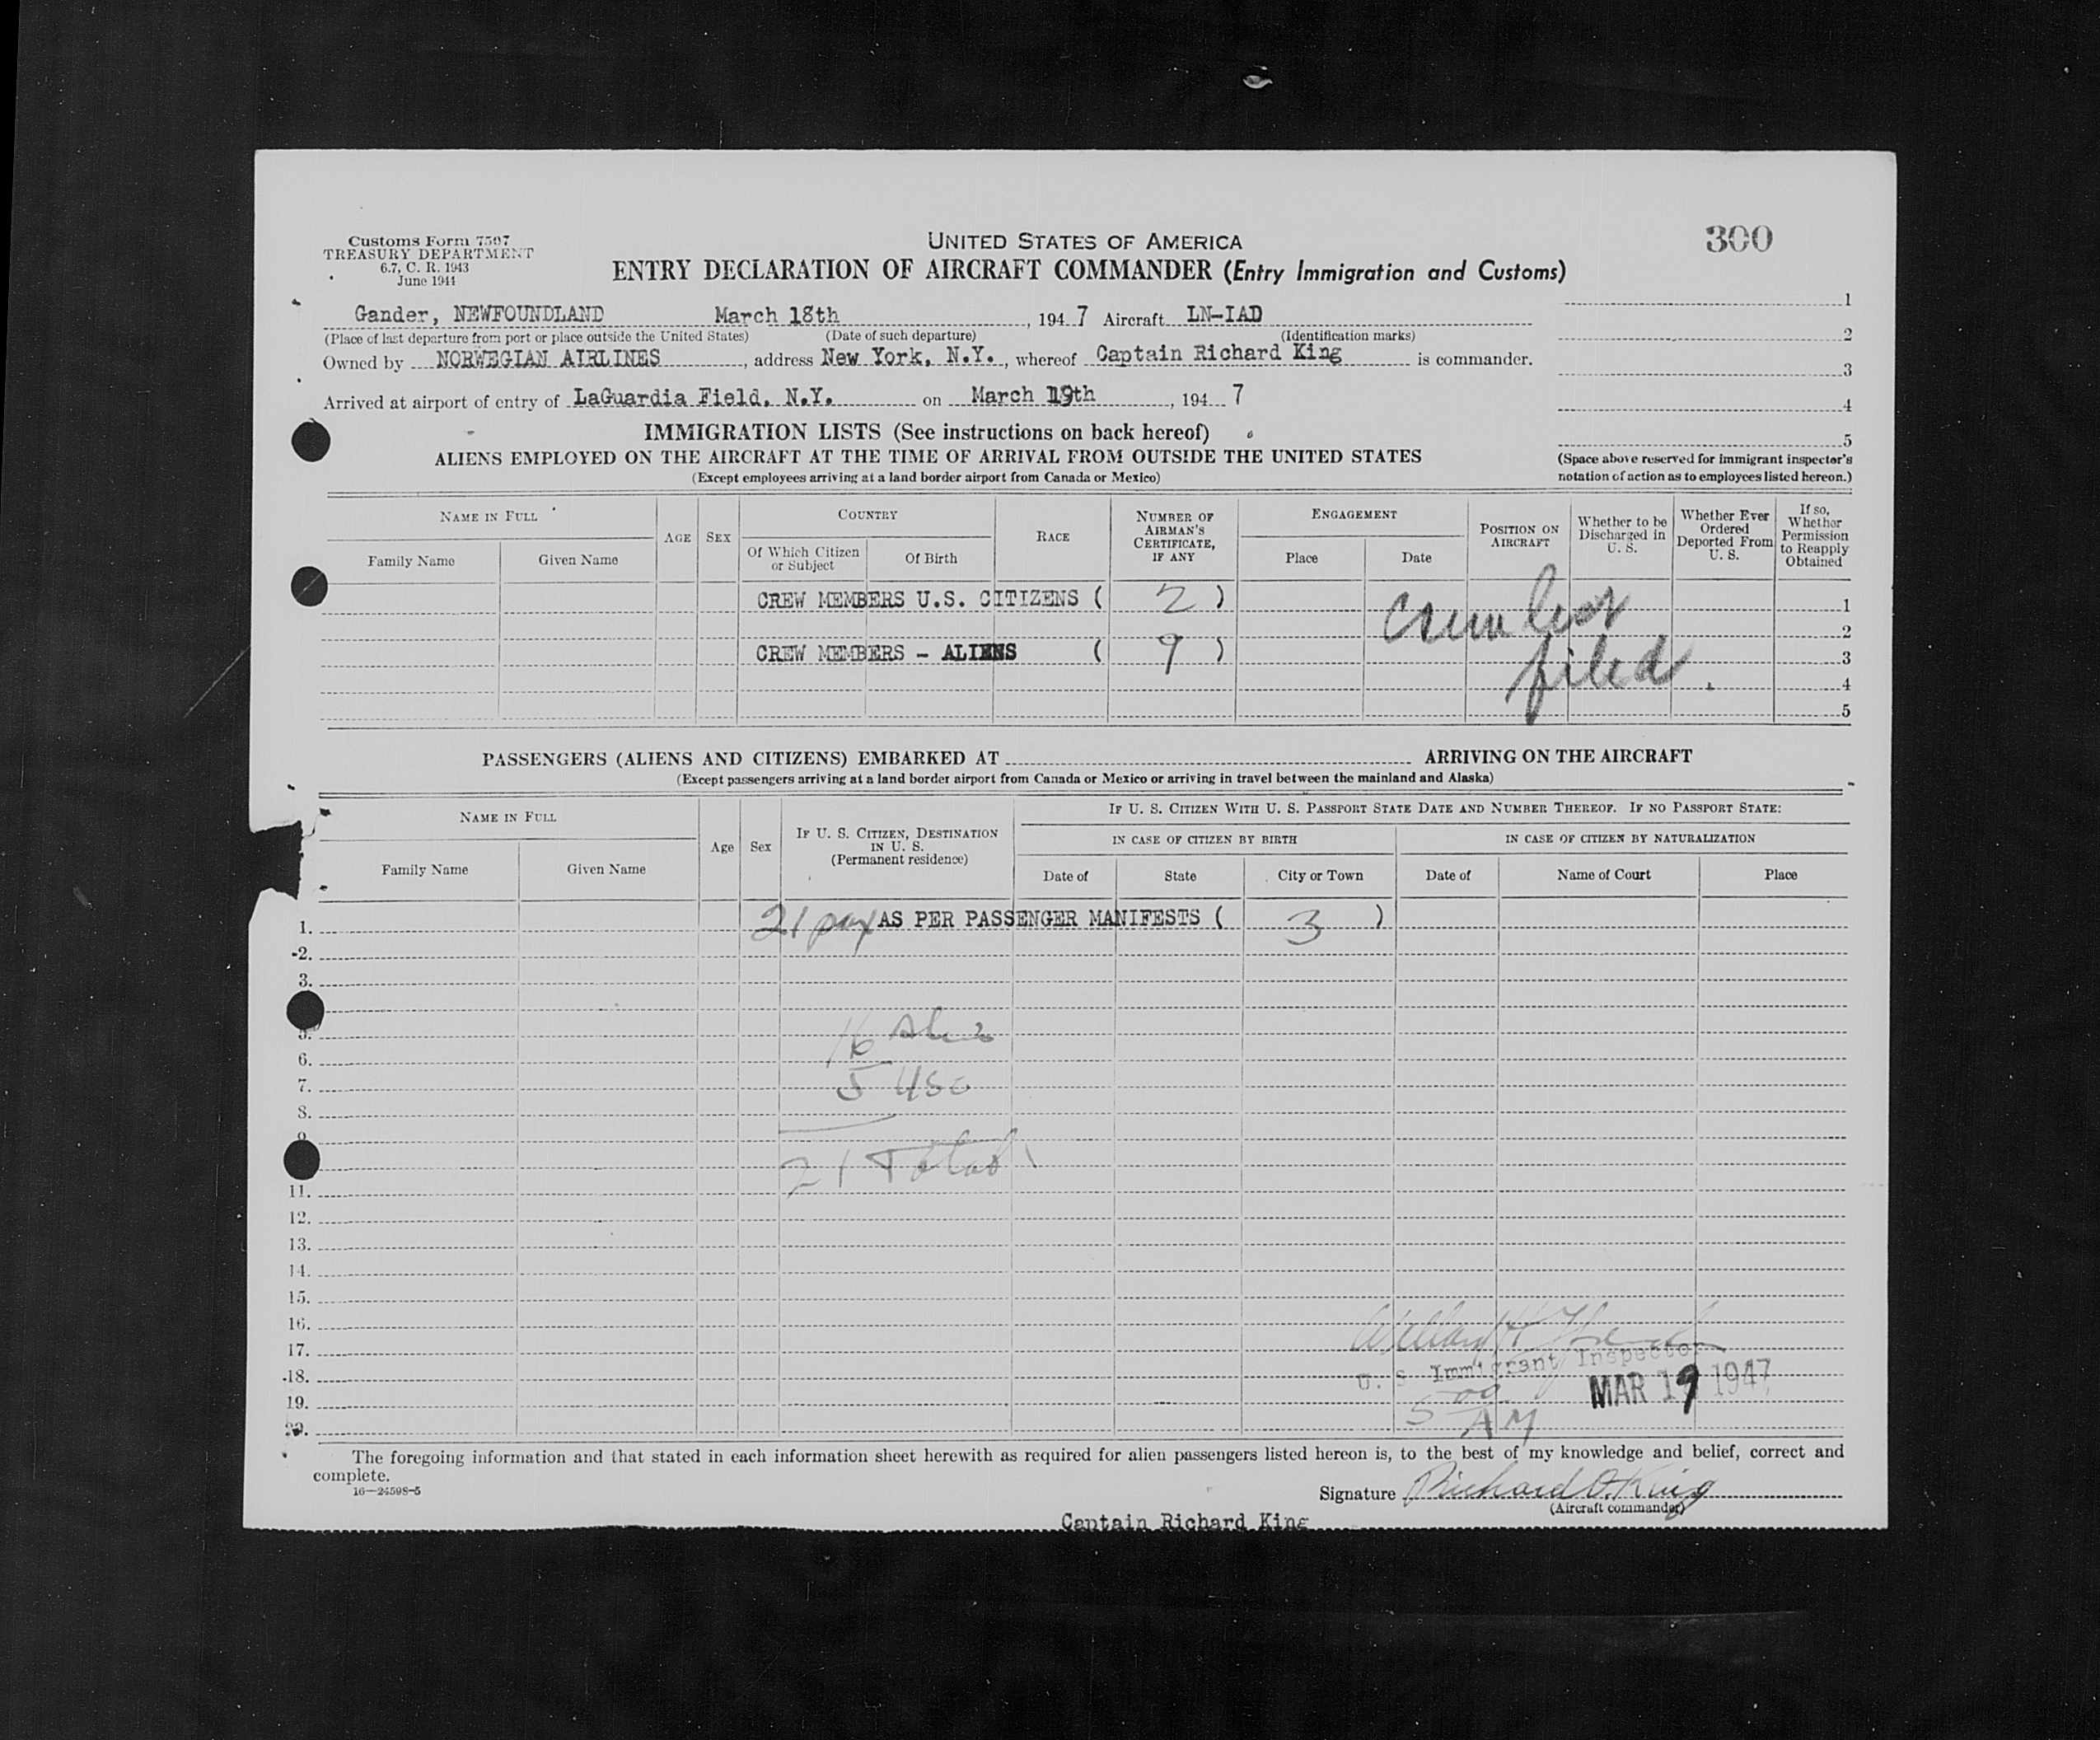 Customs Form 7507
TREASURY DEPARTMENT
6.7, C. R. 1943
June 1944
UNITED STATES OF AMERICA
300
ENTRY DECLARATION OF AIRCRAFT COMMANDER (Entry Immigration and Customs)
Gander, NEWFOUNDLAND March 18th, 194 7 Aircraft LN-IAD
(Place of last departure from port or place outside the United States) (Date of such departure) (Identification marks)
Owned by NORWEGIAN AIRLINES, address New York, N.Y., whereof Captain Richard King is commander.
Arrived at airport of entry of LaGuardia Field, N.Y. on March 19th, 194 7
1
2
3
4
5
(Space above reserved for immigrant inspector's
notation of action as to employees listed hereon.)
IMMIGRATION LISTS (See instructions on back hereof)
ALIENS EMPLOYED ON THE AIRCRAFT AT THE TIME OF ARRIVAL FROM OUTSIDE THE UNITED STATES
(Except employees arriving at a land border airport from Canada or Mexico)
NAME IN FULL
Family Name
Given Name
AGE
SEX
COUNTRY
Of Which Citizen
or Subject
Of Birth
RACE
NUMBER OF
AIRMAN'S
CERTIFICATE,
IF ANY
ENGAGEMENT
Place
Date
POSITION ON
AIRCRAFT
Whether to be
Discharged in
U. S.
Whether Ever
Ordered
Deported From
U. S.
If so,
Whether
Permission
to Reapply
Obtained
CREW MEMBERS U.S. CITIZENS ( 2 ) 1
2
CREW MEMBERS - ALIENS ( 9 ) 3
4
5
filed
PASSENGERS (ALIENS AND CITIZENS) EMBARKED AT ARRIVING ON THE AIRCRAFT
(Except passengers arriving at a land border airport from Canada or Mexico or arriving in travel between the mainland and Alaska)
NAME IN FULL
Family Name
Given Name
Age
Sex
IF U. S. CITIZEN, DESTINATION
IN U. S.
(Permanent residence)
IF U. S. CITIZEN WITH U. S. PASSPORT STATE DATE AND NUMBER THEREOF. IF NO PASSPORT STATE:
IN CASE OF CITIZEN BY BIRTH
IN CASE OF CITIZEN BY NATURALIZATION
Date of
State
City or Town
Date of
Name of Court
Place
1. 21 pax AS PER PASSENGER MANIFESTS ( 3 )
2.
3.
5.
16
6.
7. 5 USC
8.
9
21 Total
11.
12.
13.
14.
15.
16.
17.
U. S. Immigrant Inspector
18.
MAR 19 1947
19.
5 00 AM
20.
The foregoing information and that stated in each information sheet herewith as required for alien passengers listed hereon is, to the best of my knowledge and belief, correct and
complete.
16—24598-5
Signature Richard O. King
(Aircraft commander)
Captain Richard King